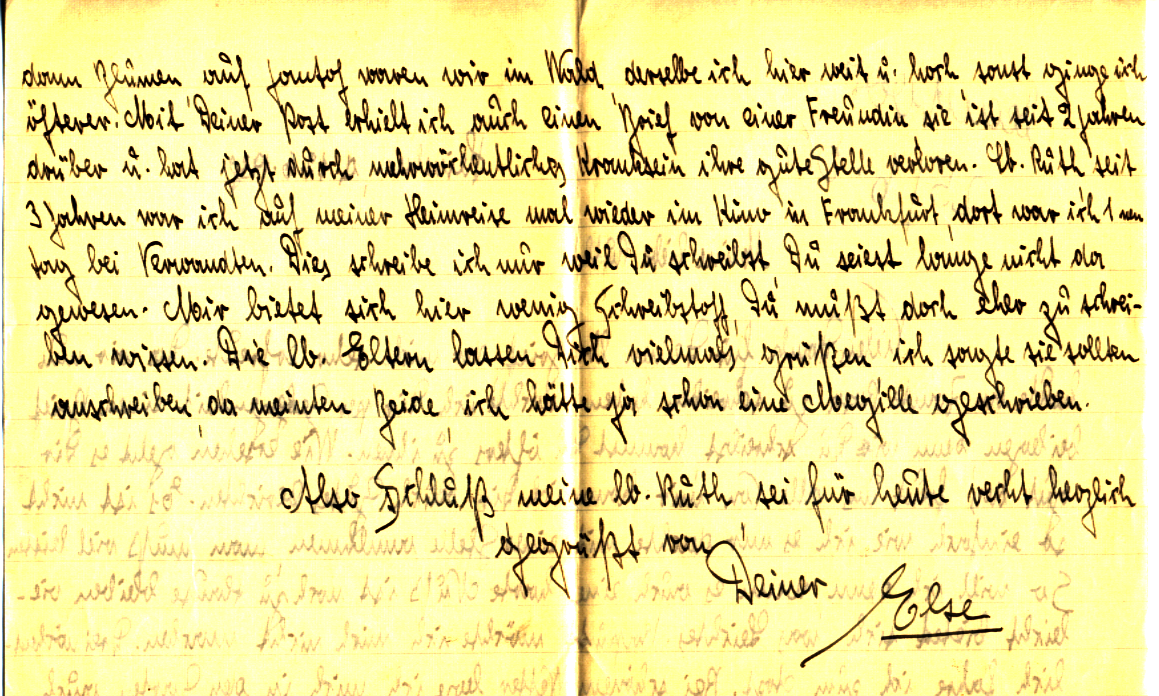 dann Blumen auf waren wir im Wald, derselbe ich hier weit u. hoch, sonst ginge ich
öfterer. Mit Deiner Post erhielt ich auch einen Brief von einer Freundin, sie ist seit 2 Jahren
drüber u. hat jetzt durch mehrwöchentliches Kranksein ihre gute Stelle verloren. Lb. Ruth seit
3 Jahren war ich auf meiner Heimreise mal wieder im Kino in Frankfurt, dort war ich 1
tag bei Verwandten. Dies schreibe ich nur weil Du schreibst, Du seiest lange nicht da
gewesen. Mir bietet sich hier wenig Schreibstoff, Du mußt doch eher zu schrei-
ben wissen. Die lb. Eltern lassen Dich vielmals grüßen ich sagte sie sollten
anschreiben, da meinten Beide, ich hätte ja schon eine Megille geschrieben.
Also Schluß meine lb. Ruth sei für heute recht herzlich
gegrüßt von
Deiner Else